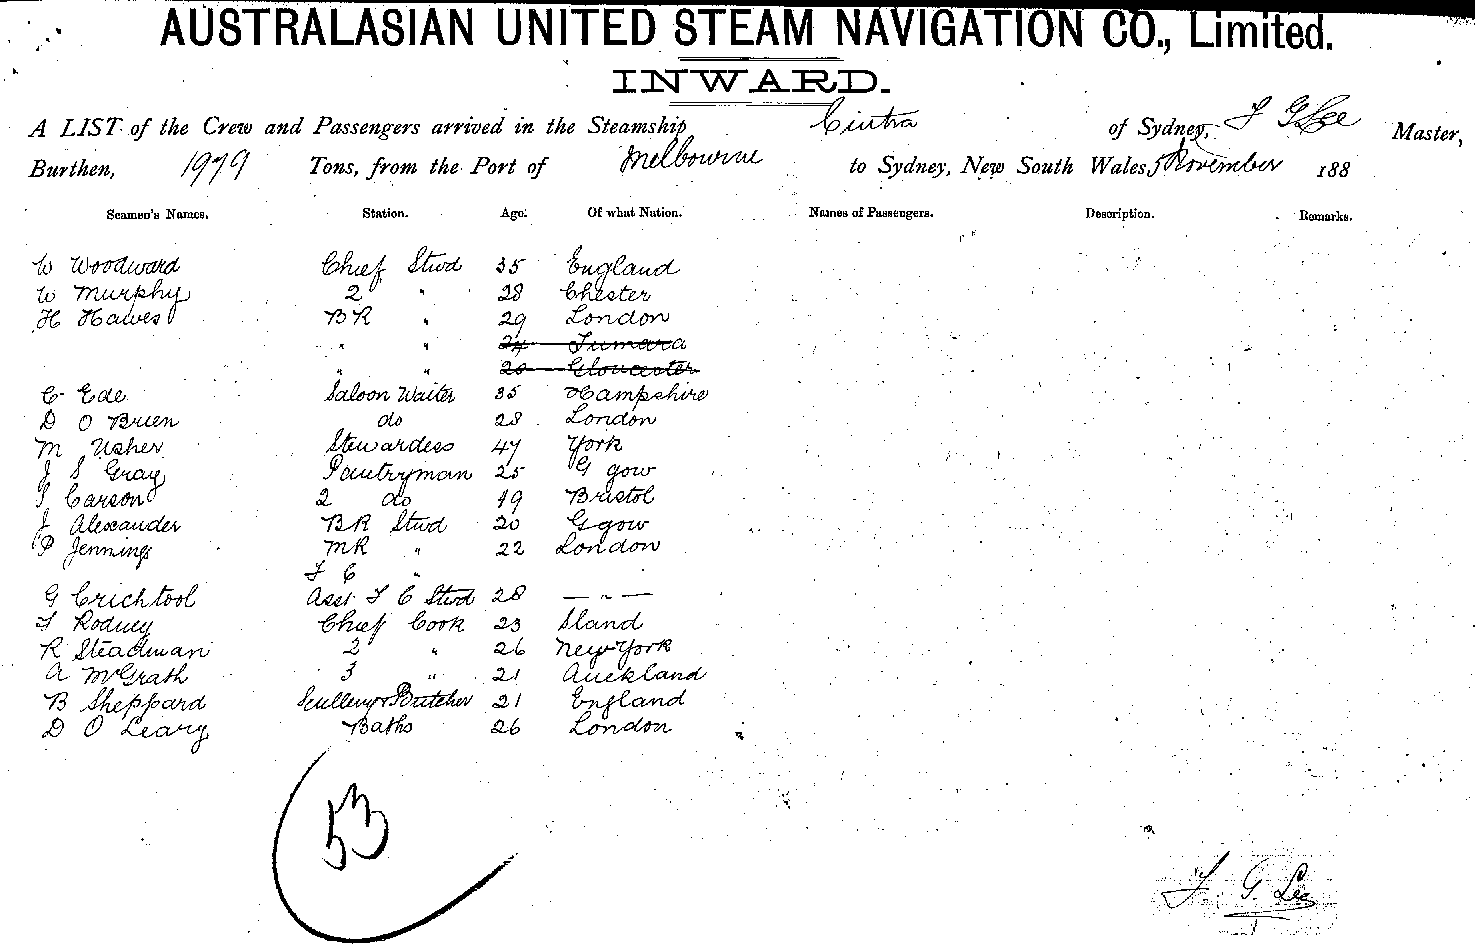 AUSTRALASIAN UNITED STEAM NAVIGATION CO., Limited.
INWARD.
A LIST of the Crew and Passengers arrived in the Steamship Cintra of Sydney, F G Lee Master,
Burthen, 1979 Tons, from the Port of Melbourne to Sydney, New South Wales, 5 November 188
Seamen's Names. Station. Age. Of what Nation. Names of Passengers. Description. Remarks.
W Woodward Chief Stwd 35 England
W Murphy 2 " 28 Chester
H Hawes BR " 29 London
" " 24
" " 20 Gloucester
C Ede Saloon Waiter 35 Hampshire
D O Brien do 28 London
M Usher Stewardess 47 York
J S Gray Pantryman 25 G gow
Carson 2 do 19 Bristol
J Alexander BR Stwd 20 Ggow
P Jennings MR " 22 London
F C "
G Crichtool Asst F C Stwd 28 — " —
F Rodney Chief Cook 23 Sland
R Steadman 2 " 26 New York
A McGrath 3 " 21 Auckland
B Sheppard Butcher 21 England
D O Leary Baths 26 London
53
F. G. Lee